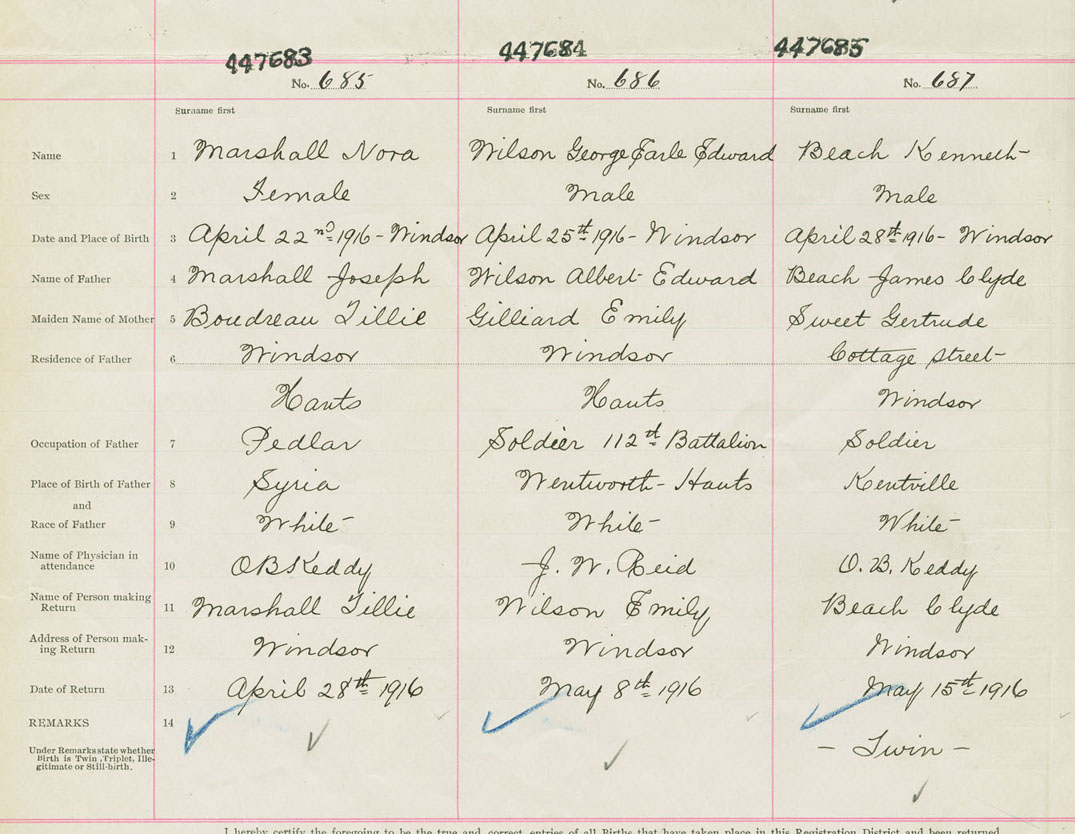 447683 447684 447685
No. 685 No. 686 No. 687
Surname first Surname first Surname first
Name 1 Marshall Nora Wilson George Earle Edward Beach Kenneth
Sex 2 Female Male Male
Date and Place of Birth 3 April 22nd 1916 - Windsor April 25th 1916 - Windsor April 28th 1916 - Windsor
Name of Father 4 Marshall Joseph Wilson Albert Edward Beach James Clyde
Maiden Name of Mother 5 Boudreau Tillie Gilliard Emily Sweet Gertrude
Residence of Father 6 Windsor Windsor Cottage Street
Hants Hants Windsor
Occupation of Father 7 Pedlar Soldier 112th Battalion Soldier
Place of Birth of Father 8 Syria Wentworth - Hants Kentville
and
Race of Father 9 White White White
Name of Physician in
attendance 10 O B Keddy J. W. Reid O. B. Keddy
Name of Person making
Return 11 Marshall Tillie Wilson Emily Beach Clyde
Address of Person mak-
ing Return 12 Windsor Windsor Windsor
Date of Return 13 April 28th 1916 May 8th 1916 May 15th 1916
REMARKS 14
Under Remarks state whether
Birth is Twin, Triplet, Ille-
gitimate or Still-birth.
- Twin -
I hereby certify the foregoing to be the true and correct entries of all Births that have taken place in this Registration District and been returned